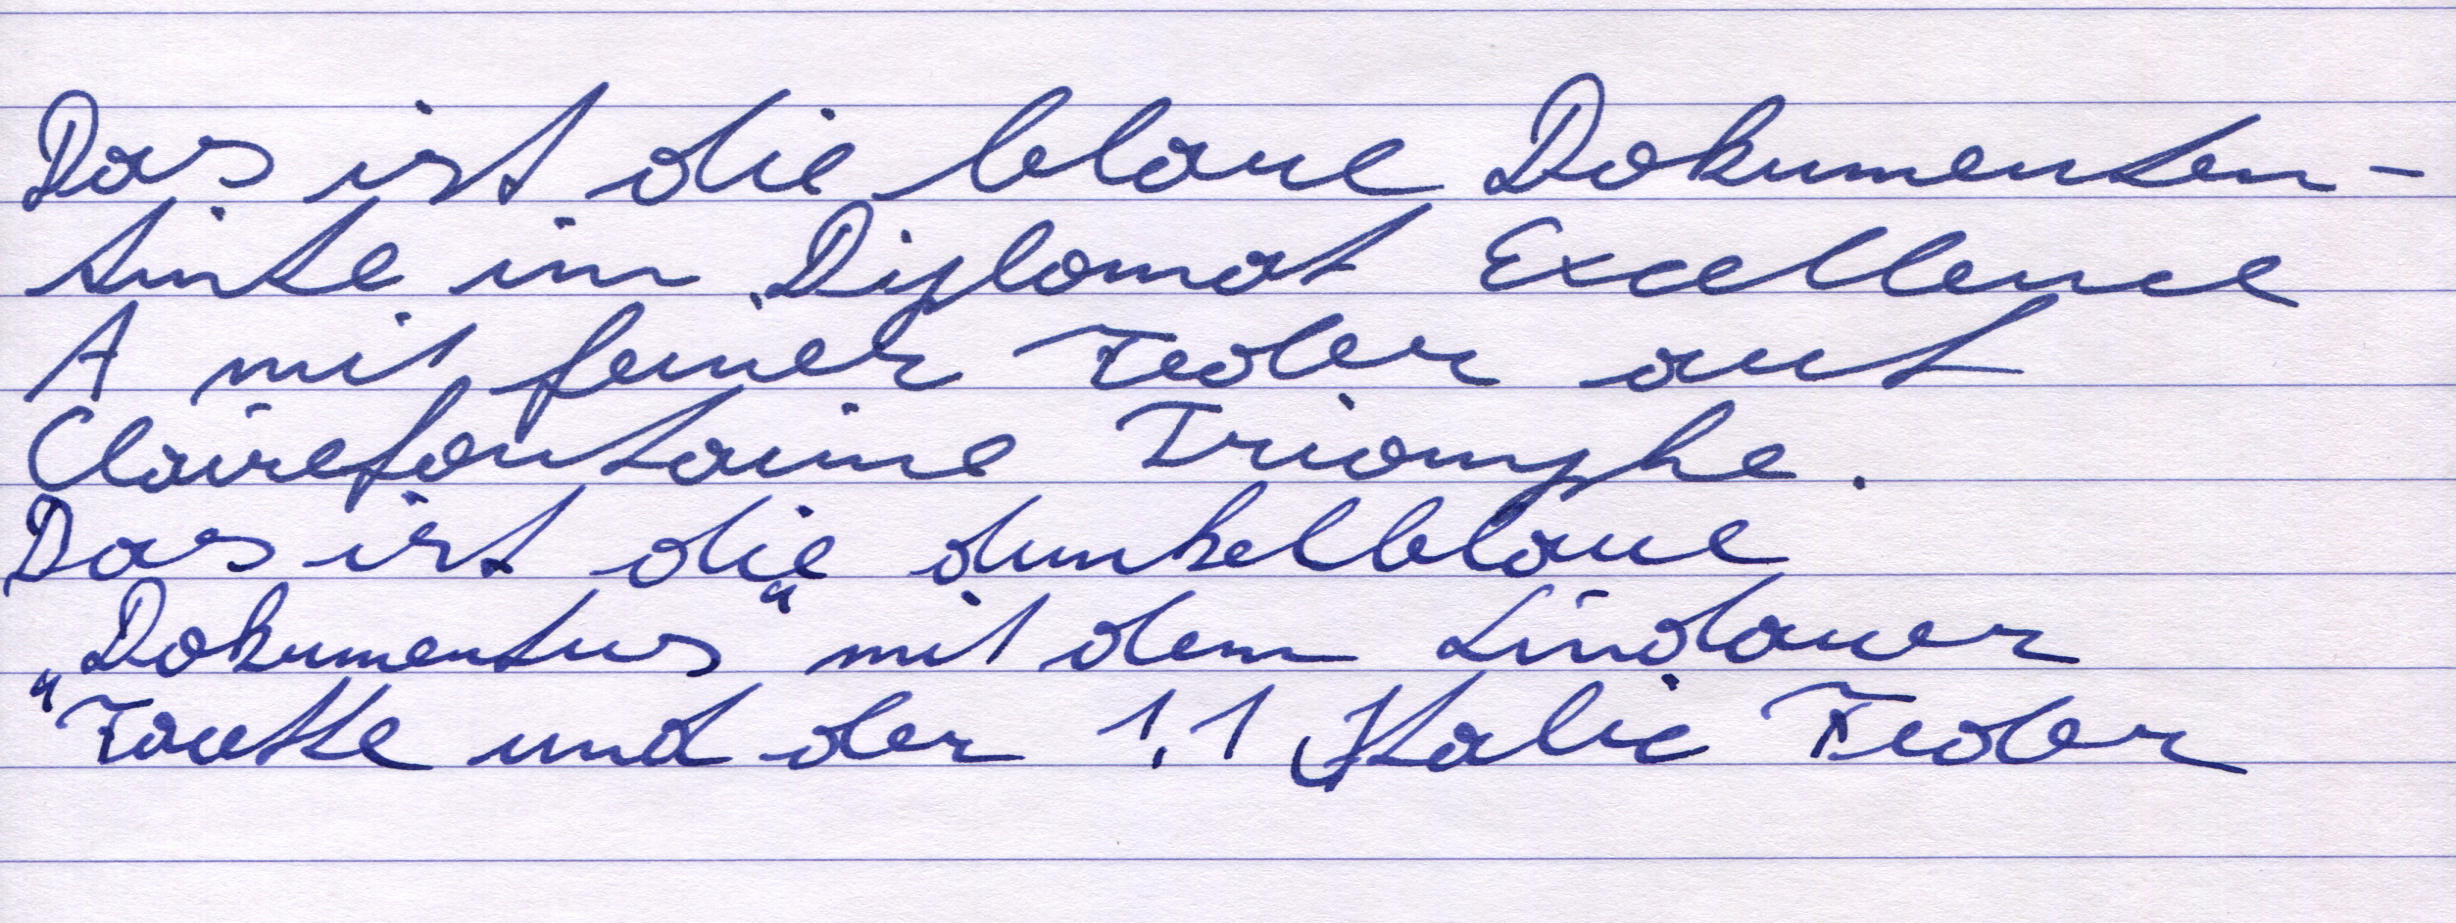 Das ist die blaue Dokumenten-
tinte im Diplomat Excellence
A mit feiner Feder auf
Clairefontaine Triomphe.
Das ist die dunkelblaue
„Dokumentus“ mit dem Lindauer
"Faust und der 1,1 Italic Feder